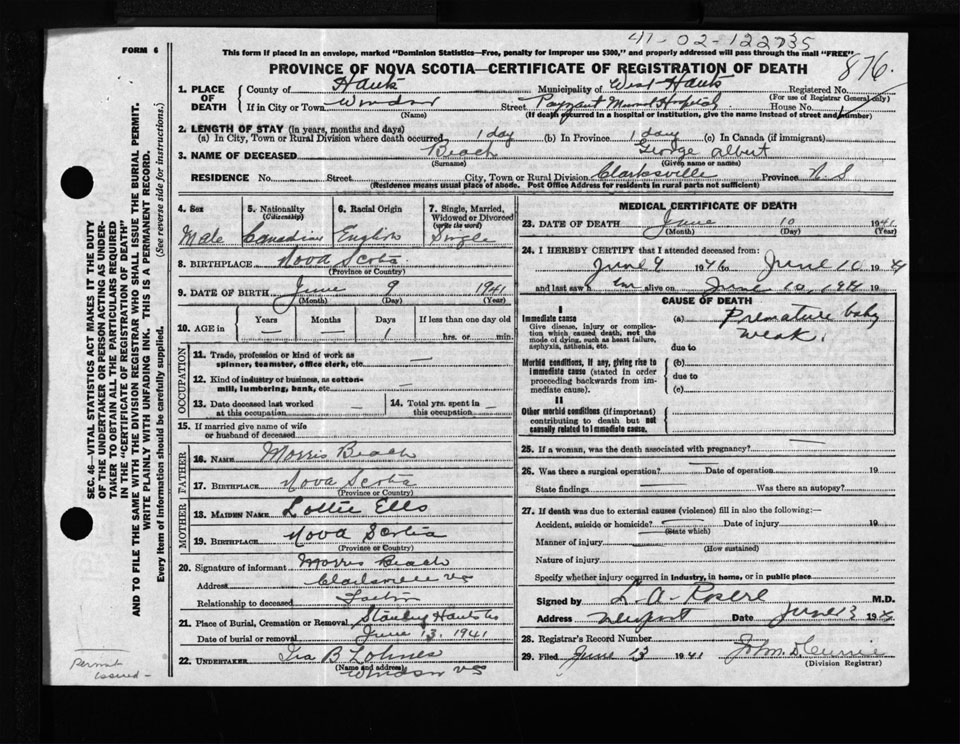 41-02-122735
FORM 6
This form if placed in an envelope, marked "Dominion Statistics—Free, penalty for improper use $300," and properly addressed will pass through the mail "FREE"
PROVINCE OF NOVA SCOTIA—CERTIFICATE OF REGISTRATION OF DEATH
876.
1. PLACE OF DEATH
County of Hants Municipality of West Hants Registered No.
(For use of Registrar General only)
If in City or Town Windsor Street Payzant Memorial Hospital House No.
(Name) (If death occurred in a hospital or institution, give the name instead of street and number)
2. LENGTH OF STAY (in years, months and days)
(a) In City, Town or Rural Division where death occurred 1 day (b) In Province 1 day (c) In Canada (if immigrant)
3. NAME OF DECEASED Beach George Albert
(Surname) (Given name or names)
RESIDENCE No. Street City, Town or Rural Division Clarksville Province N S
(Residence means usual place of abode. Post Office Address for residents in rural parts not sufficient)
4. Sex Male
5. Nationality (Citizenship) Canadian
6. Racial Origin English
7. Single, Married, Widowed or Divorced (write the word) Single
8. BIRTHPLACE Nova Scotia
(Province or Country)
9. DATE OF BIRTH June 9 1941
(Month) (Day) (Year)
10. AGE in Years — Months — Days 1 If less than one day old hrs. or min.
OCCUPATION
11. Trade, profession or kind of work as spinner, teamster, office clerk, etc.
12. Kind of industry or business, as cotton-mill, lumbering, bank, etc. —
13. Date deceased last worked at this occupation —
14. Total yrs. spent in this occupation
15. If married give name of wife or husband of deceased
FATHER
16. NAME Morris Beach
17. BIRTHPLACE Nova Scotia
(Province or Country)
MOTHER
18. MAIDEN NAME Lottie Ells
19. BIRTHPLACE Nova Scotia
(Province or Country)
20. Signature of informant Morris Beach
Address Clarksville NS
Relationship to deceased Father
21. Place of Burial, Cremation or Removal Stanley Hants Co
Date of burial or removal June 13, 1941
22. UNDERTAKER Ira B Lohnes
(Name and address)
Windsor NS
MEDICAL CERTIFICATE OF DEATH
23. DATE OF DEATH June 10 1941
(Month) (Day) (Year)
24. I HEREBY CERTIFY that I attended deceased from:
June 9 1941 to June 10 1941
and last saw him alive on June 10, 1941
CAUSE OF DEATH
I
Immediate cause
Give disease, injury or complication which caused death, not the mode of dying, such as heart failure, asphyxia, asthenia, etc.
(a) Premature baby
weak.
due to
Morbid conditions, if any, giving rise to immediate cause (stated in order proceeding backwards from immediate cause).
(b)
due to
(c)
II
Other morbid conditions (if important) contributing to death but not causally related to immediate cause.
25. If a woman, was the death associated with pregnancy?
26. Was there a surgical operation? — Date of operation 19
State findings Was there an autopsy?
27. If death was due to external causes (violence) fill in also the following:—
Accident, suicide or homicide? Date of injury 19
(State which)
Manner of injury
(How sustained)
Nature of injury
Specify whether injury occurred in industry, in home, or in public place
Signed by M.D.
Address Newport Date June 13 1941
28. Registrar's Record Number
29. Filed June 13 1941 John D. Currie
(Division Registrar)
SEC. 46—VITAL STATISTICS ACT MAKES IT THE DUTY
OF THE UNDERTAKER OR PERSON ACTING AS UNDERTAKER TO OBTAIN ALL THE PARTICULARS REQUIRED
IN THE "CERTIFICATE OF REGISTRATION OF DEATH"
AND TO FILE THE SAME WITH THE DIVISION REGISTRAR WHO SHALL ISSUE THE BURIAL PERMIT.
WRITE PLAINLY WITH UNFADING INK. THIS IS A PERMANENT RECORD.
Every item of information should be carefully supplied. (See reverse side for instructions.)
Permit
issued -